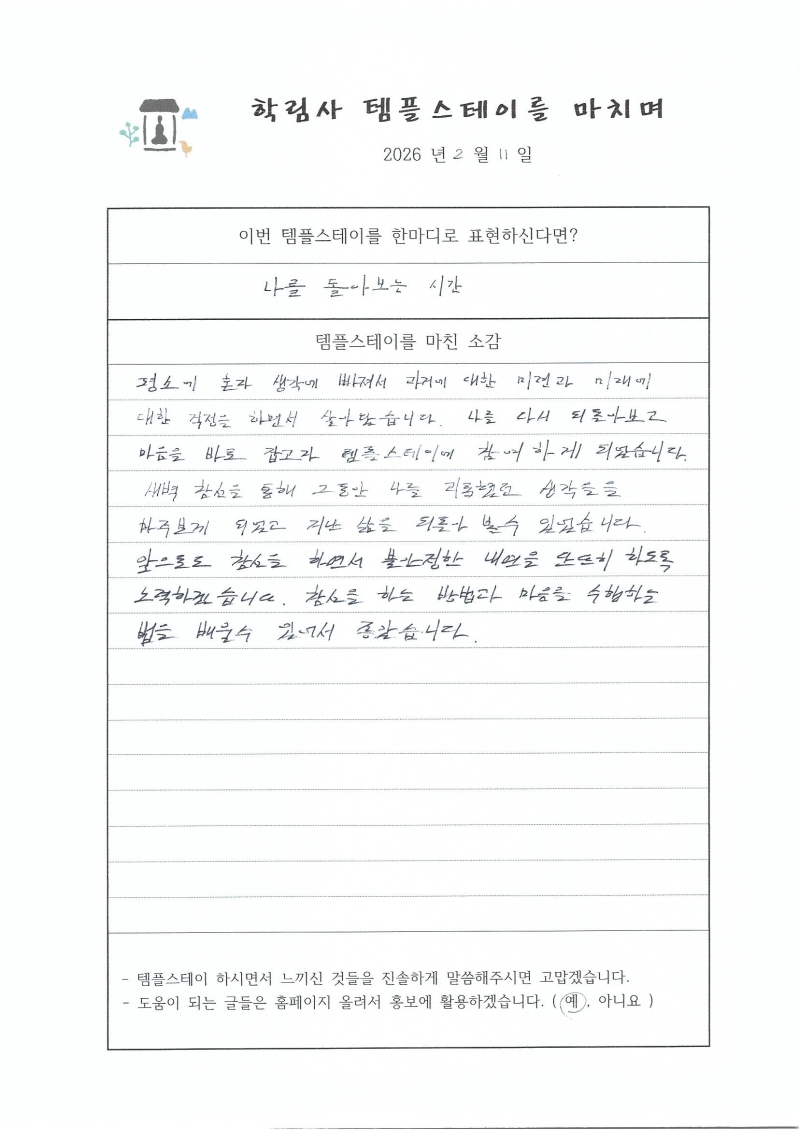 학림사 템플스테이를 마치며
2026 년 2 월 11 일
이번 템플스테이를 한마디로 표현하신다면?
나를 돌아보는 시간
템플스테이를 마친 소감
평소에 혼자 생각에 빠져서 과거에 대한 미련과 미래에
대한 걱정을 하면서 살아왔습니다. 나를 다시 되돌아보고
마음을 바로 잡고자 템플스테이에 참여하게 되었습니다.
새벽 참선을 통해 그동안 나를 괴롭혔던 생각들을
마주보게 되었고 지난 삶을 되돌아 볼수 있었습니다.
앞으로도 참선을 하면서 불안정한 내면을 단단히 하도록
노력하겠습니다. 참선을 하는 방법과 마음을 수행하는
법을 배울수 있어서 좋았습니다.
- 템플스테이 하시면서 느끼신 것들을 진솔하게 말씀해주시면 고맙겠습니다.
- 도움이 되는 글들은 홈페이지 올려서 홍보에 활용하겠습니다. ( 예, 아니요 )